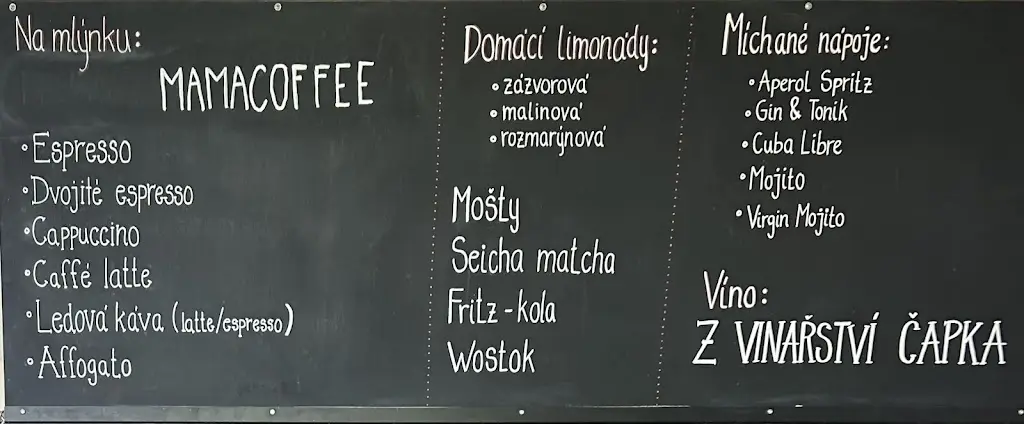 Na mlýnku:
MAMACOFFEE
• Espresso
• Dvojité espresso
• Cappuccino
• Caffé latte
• Ledová káva (latte/espresso)
• Affogato
Domácí limonády:
• zázvorová
• malinová
• rozmarýnová
Mošty
Seicha matcha
Fritz-kola
Wostok
Míchané nápoje:
• Aperol Spritz
• Gin & Tonik
• Cuba Libre
• Mojito
• Virgin Mojito
Víno:
Z VINAŘSTVÍ ČAPKA